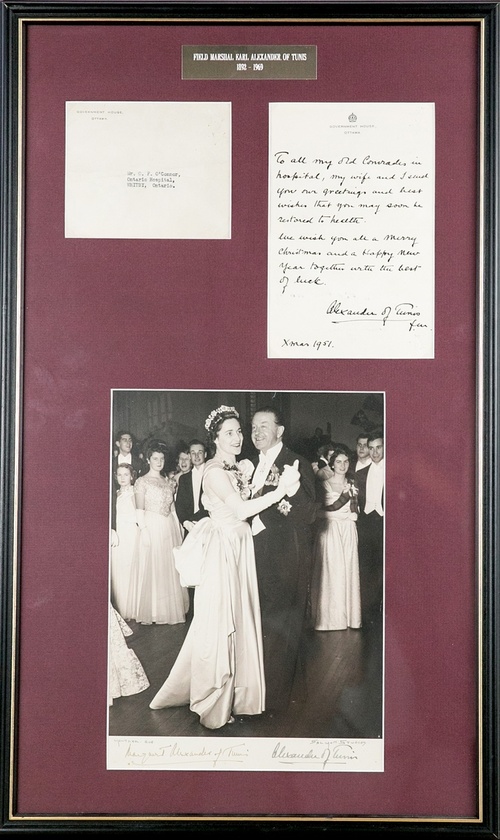 FIELD MARSHAL EARL ALEXANDER OF TUNIS
1892 - 1969
GOVERNMENT HOUSE
OTTAWA
Mr. F. O'Connor,
Ontario Hospital,
WHITBY, Ontario.
GOVERNMENT HOUSE,
OTTAWA
To all my old Comrades in
hospital, my wife and I send
you our greetings and best
wishes that you may soon be
restored to health.
We wish you all a Merry
Christmas and a Happy New
Year together with the best
of luck.
Alexander of Tunis
f.m.
Xmas 1951.
Margaret Alexander of Tunis
Alexander of Tunis